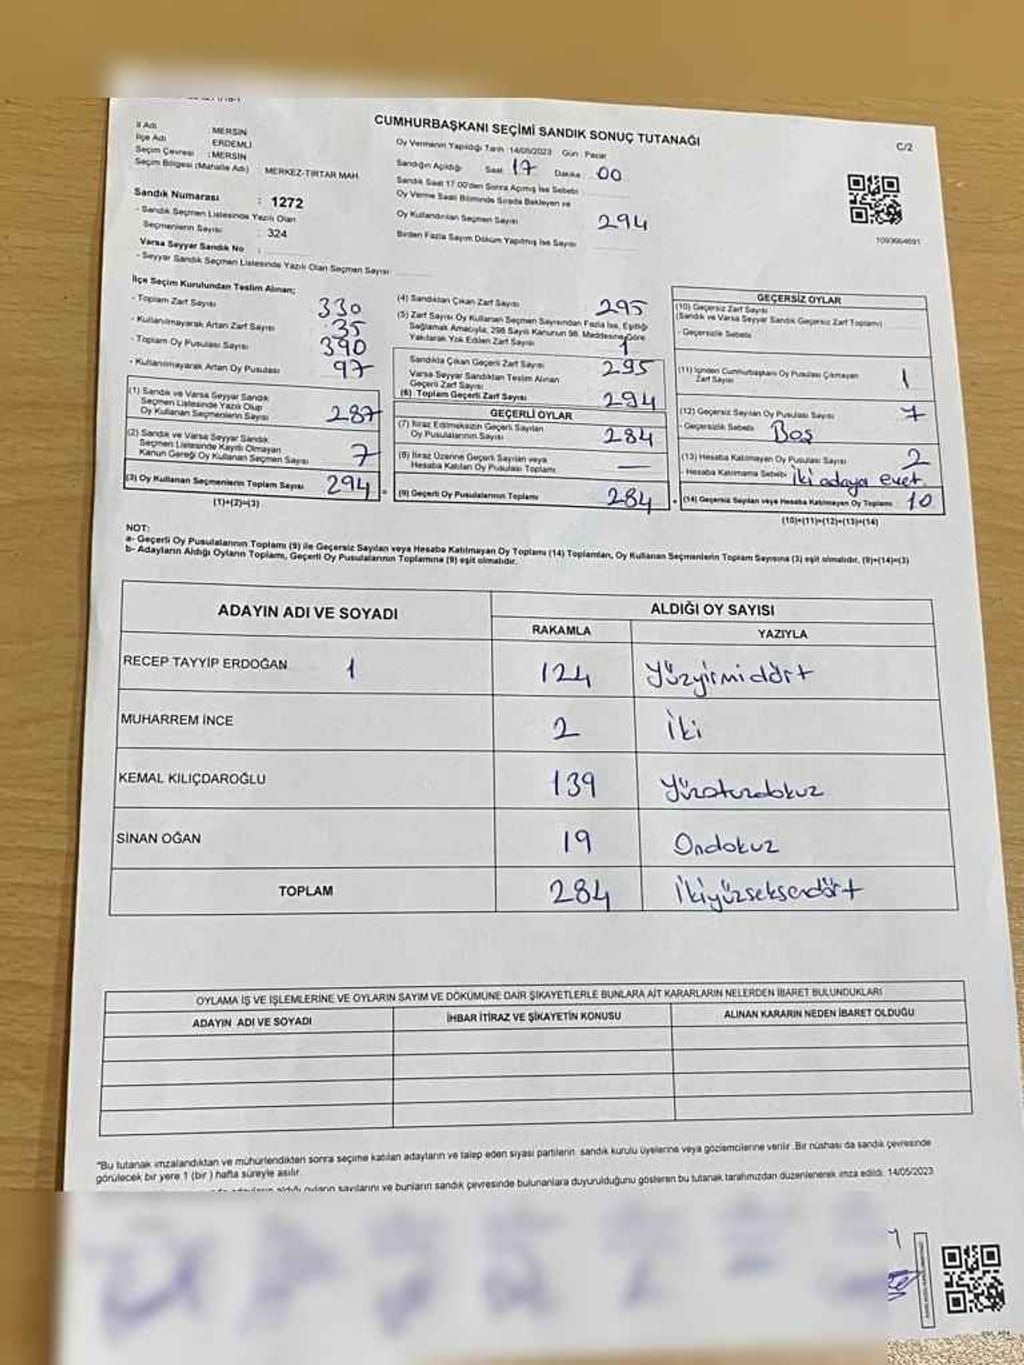 CUMHURBAŞKANI SEÇİMİ SANDIK SONUÇ TUTANAĞI
C/2
İl Adı MERSİN
İlçe Adı ERDEMLİ
Seçim Çevresi : MERSİN
Seçim Bölgesi (Mahalle Adı) MERKEZ-TIRTAR MAH.
Sandık Numarası : 1272
- Sandık Seçmen Listesinde Yazılı Olan
Seçmenlerin Sayısı : 324
Varsa Seyyar Sandık No :
- Seyyar Sandık Seçmen Listesinde Yazılı Olan Seçmen Sayısı
Oy Vermenin Yapıldığı Tarih 14/05/2023 Gün : Pazar
Sandığın Açıldığı Saat 17 Dakika : 00
Sandık Saat 17:00'den Sonra Açılmış İse Sebebi
Oy Verme Saati Bitiminde Sırada Bekleyen ve
Oy Kullandırılan Seçmen Sayısı 294
Birden Fazla Sayım Döküm Yapılmış İse Sayısı
1093664691
İlçe Seçim Kurulundan Teslim Alınan;
- Toplam Zarf Sayısı 330
- Kullanılmayarak Artan Zarf Sayısı 35
- Toplam Oy Pusulası Sayısı 390
- Kullanılmayarak Artan Oy Pusulası 97
(1) Sandık ve Varsa Seyyar Sandık
Seçmen Listesinde Yazılı Olup
Oy Kullanan Seçmenlerin Sayısı 287
(2) Sandık ve Varsa Seyyar Sandık
Seçmen Listesinde Kayıtlı Olmayan
Kanun Gereği Oy Kullanan Seçmen Sayısı 7
(3) Oy Kullanan Seçmenlerin Toplam Sayısı 294
(1)+(2)=(3)
(4) Sandıktan Çıkan Zarf Sayısı 295
(5) Zarf Sayısı Oy Kullanan Seçmen Sayısından Fazla İse, Eşitliği
Sağlamak Amacıyla; 298 Sayılı Kanunun 98. Maddesine Göre
Yakılarak Yok Edilen Zarf Sayısı 1
Sandıkta Çıkan Geçerli Zarf Sayısı 295
Varsa Seyyar Sandıktan Teslim Alınan
Geçerli Zarf Sayısı
(6) Toplam Geçerli Zarf Sayısı 294
GEÇERLİ OYLAR
(7) İtiraz Edilmeksizin Geçerli Sayılan
Oy Pusulalarının Sayısı 284
(8) İtiraz Üzerine Geçerli Sayılan veya
Hesaba Katılan Oy Pusulası Toplamı —
(9) Geçerli Oy Pusulalarının Toplamı 284
GEÇERSİZ OYLAR
(10) Geçersiz Zarf Sayısı
(Sandık ve Varsa Seyyar Sandık Geçersiz Zarf Toplamı)
- Geçersizlik Sebebi
(11) İçinden Cumhurbaşkanı Oy Pusulası Çıkmayan
Zarf Sayısı 1
(12) Geçersiz Sayılan Oy Pusulası Sayısı 7
- Geçersizlik Sebebi Boş
(13) Hesaba Katılmayan Oy Pusulası Sayısı 2
- Hesaba Katılmama Sebebi İki adaya evet
(14) Geçersiz Sayılan veya Hesaba Katılmayan Oy Toplamı 10
(10)+(11)+(12)+(13)=(14)
NOT:
a- Geçerli Oy Pusulalarının Toplamı (9) ile Geçersiz Sayılan veya Hesaba Katılmayan Oy Toplamı (14) Toplamları, Oy Kullanan Seçmenlerin Toplam Sayısına (3) eşit olmalıdır. (9)+(14)=(3)
b- Adayların Aldığı Oyların Toplamı, Geçerli Oy Pusulalarının Toplamına (9) eşit olmalıdır.
ADAYIN ADI VE SOYADI ALDIĞI OY SAYISI
RAKAMLA YAZIYLA
RECEP TAYYİP ERDOĞAN 1 124 Yüzyirmidört
MUHARREM İNCE 2 İki
KEMAL KILIÇDAROĞLU 139 Yüzotuzdokuz
SİNAN OĞAN 19 Ondokuz
TOPLAM 284 İkiyüzseksendört
OYLAMA İŞ VE İŞLEMLERİNE VE OYLARIN SAYIM VE DÖKÜMÜNE DAİR ŞİKAYETLERLE BUNLARA AİT KARARLARIN NELERDEN İBARET BULUNDUKLARI
ADAYIN ADI VE SOYADI İHBAR İTİRAZ VE ŞİKAYETİN KONUSU ALINAN KARARIN NEDEN İBARET OLDUĞU
"Bu tutanak imzalandıktan ve mühürlendikten sonra seçime katılan adayların ve talep eden siyasi partilerin, sandık kurulu üyelerine veya gözlemcilerine verilir. Bir nüshası da sandık çevresinde
görülecek bir yere 1 (bir) hafta süreyle asılır.
aldığı oyların sayılarını ve bunların sandık çevresinde bulunanlara duyurulduğunu gösteren bu tutanak tarafımızdan düzenlenerek imza edildi. 14/05/2023